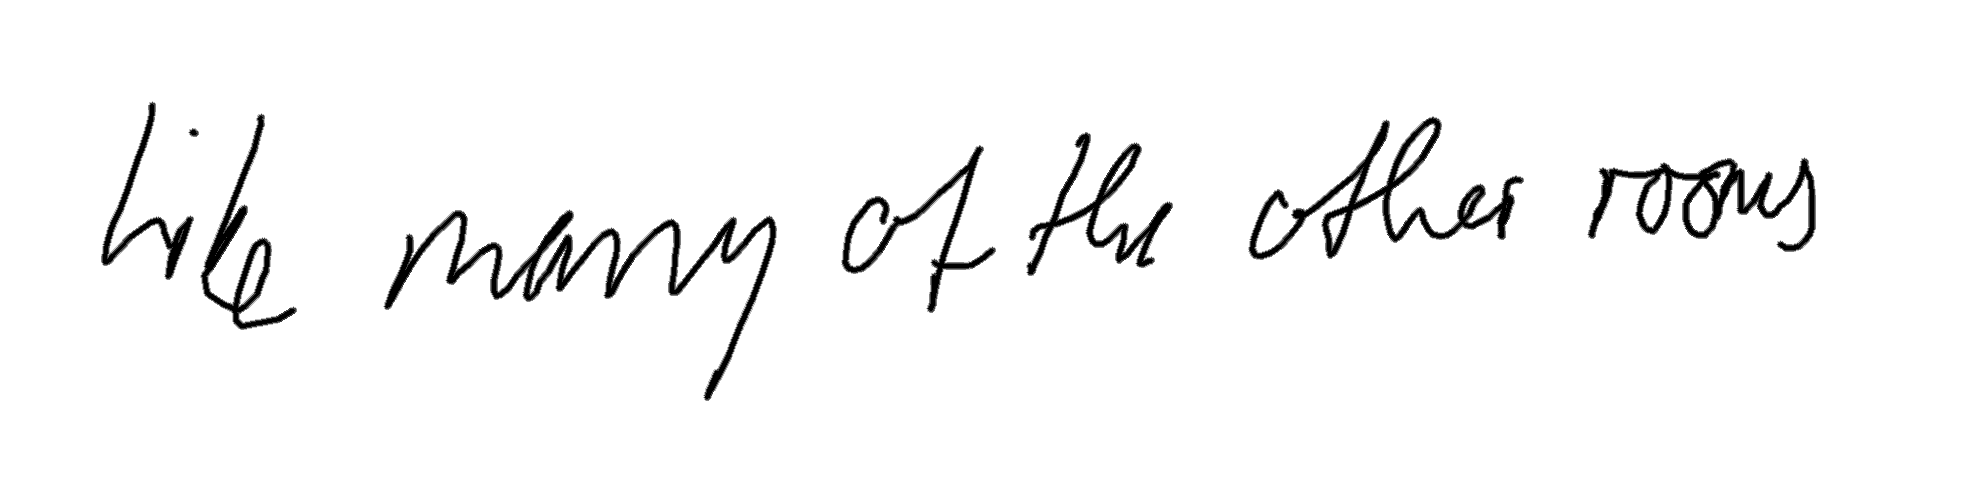 Like many of the other rooms